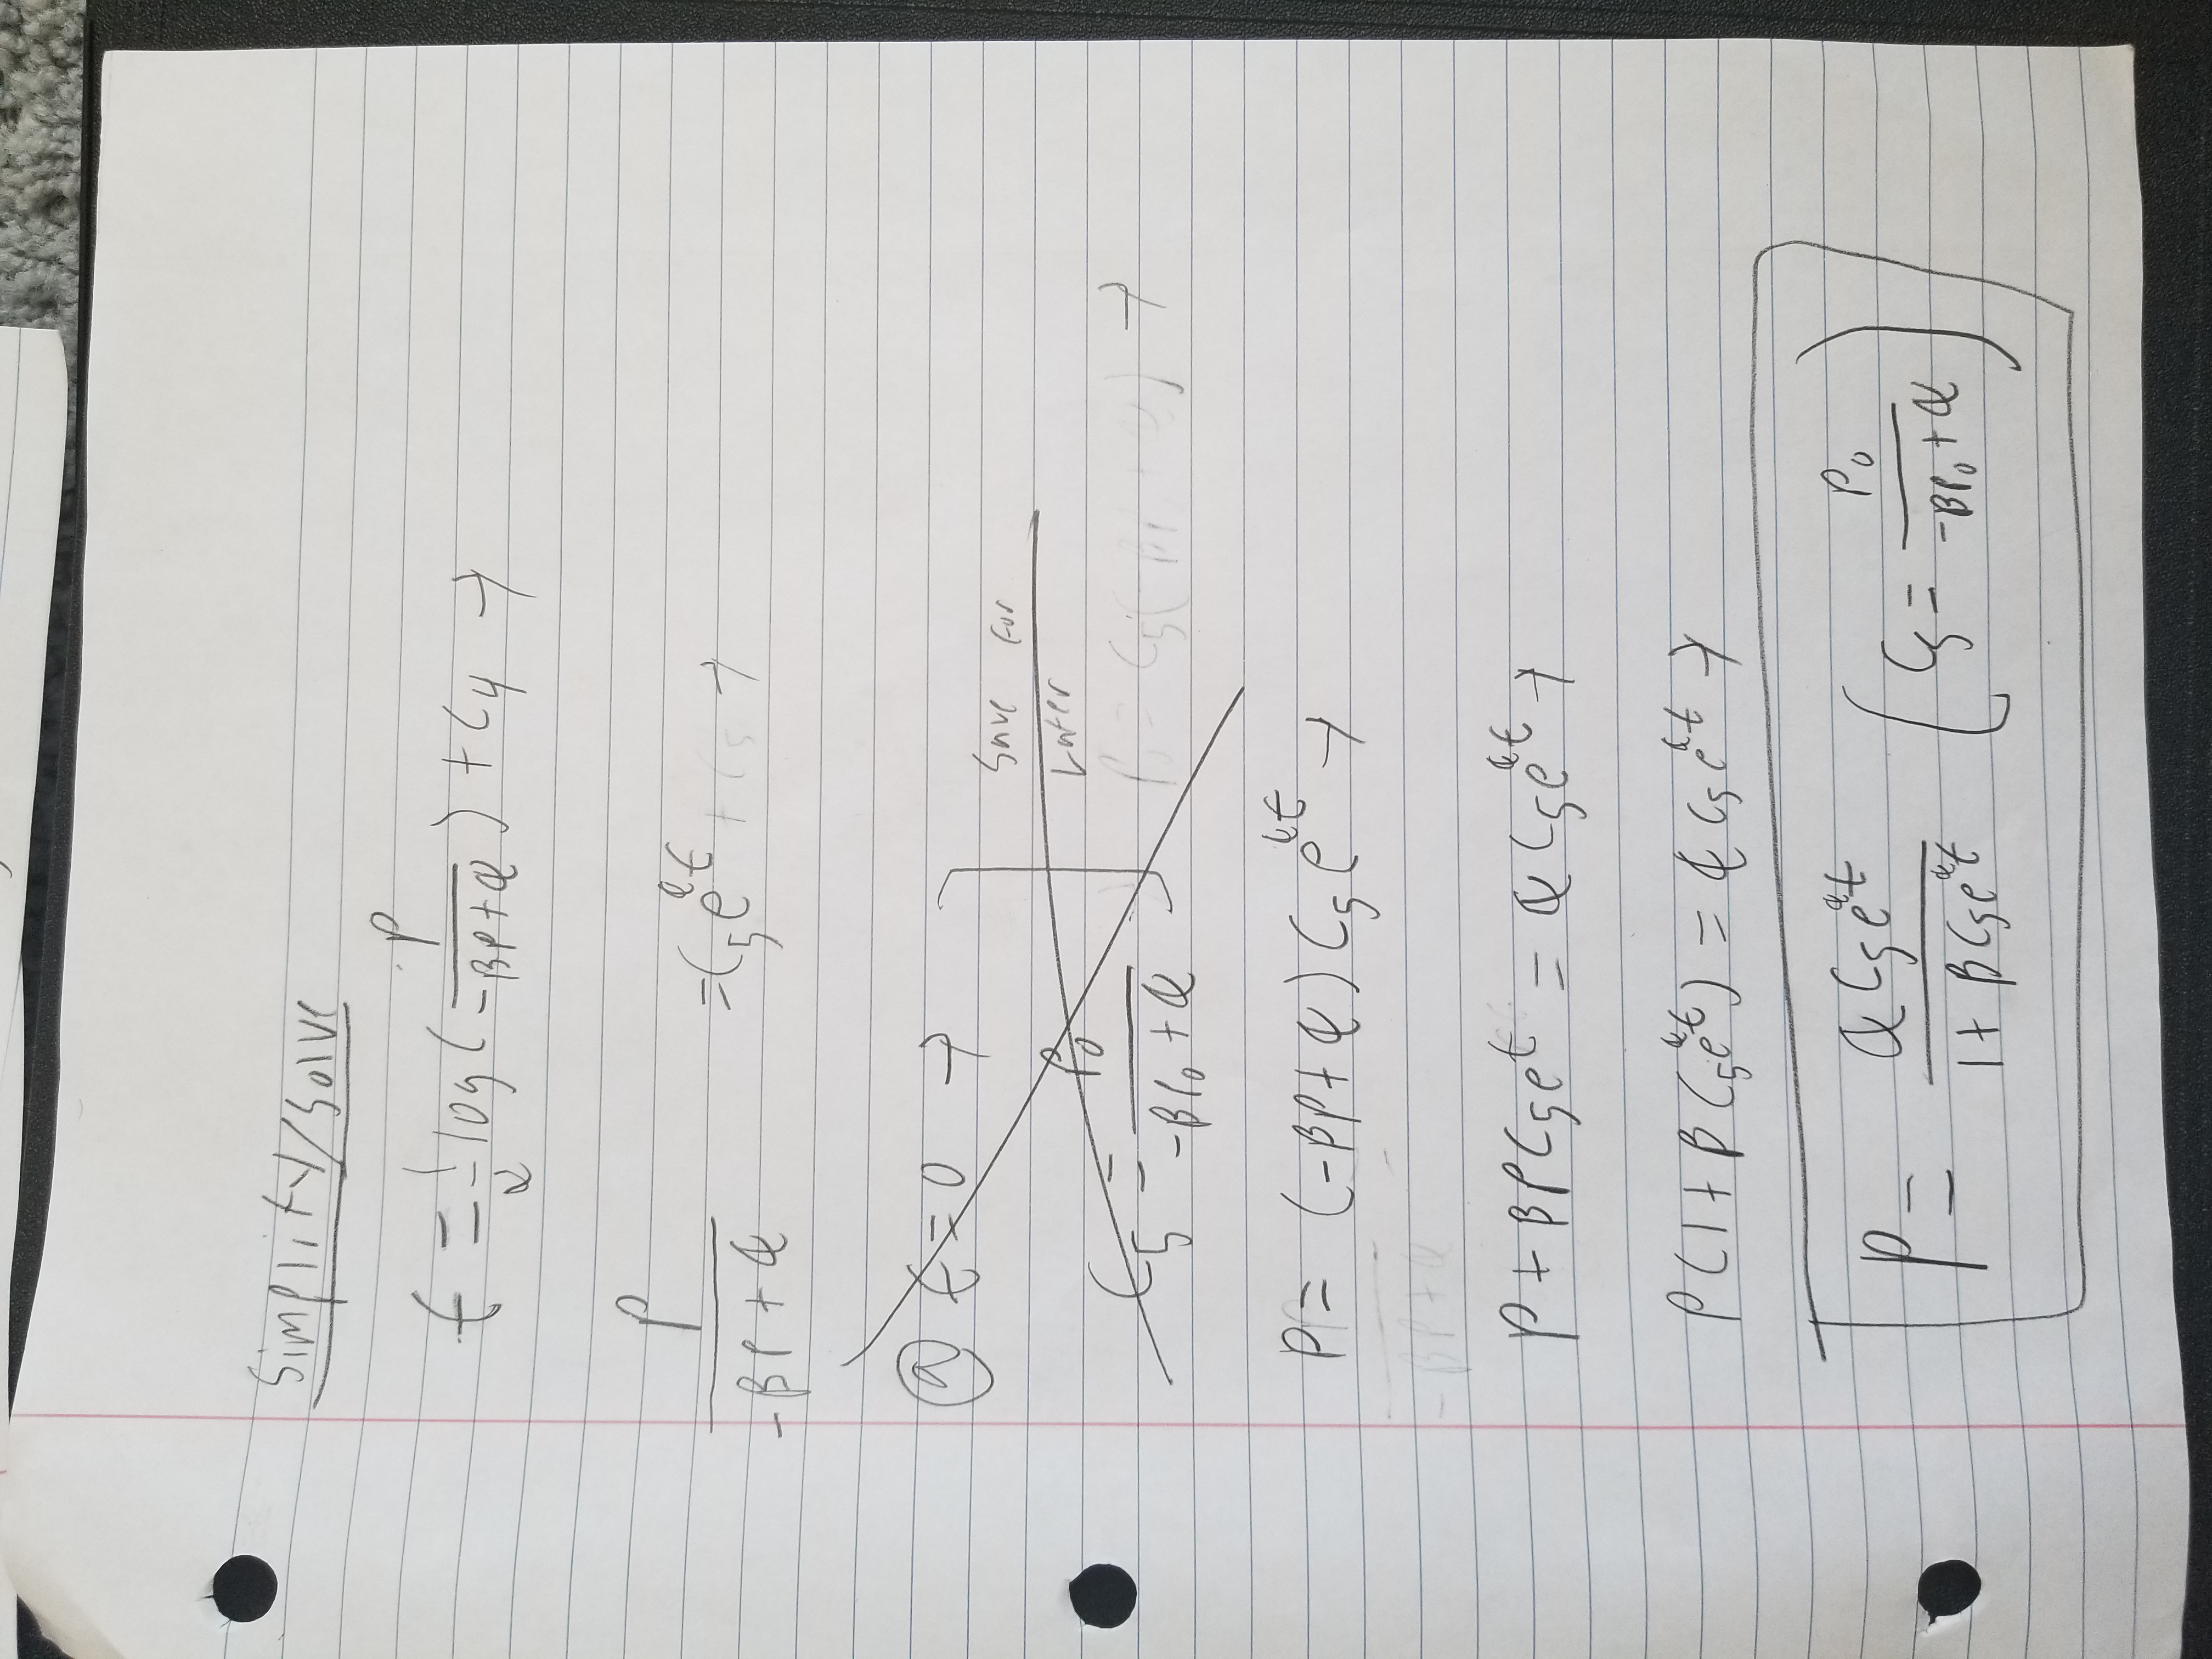 Simplify/Solve
t = 1/α log( P / (-βP+α) ) + C4 →
P / (-βP+α) = C5 e^αt + C5 →
@ t=0 →
Save For
Later
C5 = P0 / (-βP0+α)
P = C5(-βP+α) →
P = (-βP+α) C5 e^αt →
-βP+α
P + βP C5 e^t = α C5 e^αt →
P(1+β C5 e^αt) = α C5 e^αt →
P = α C5 e^αt / (1+β C5 e^αt) ( C5 = P0 / (-βP0+α) )